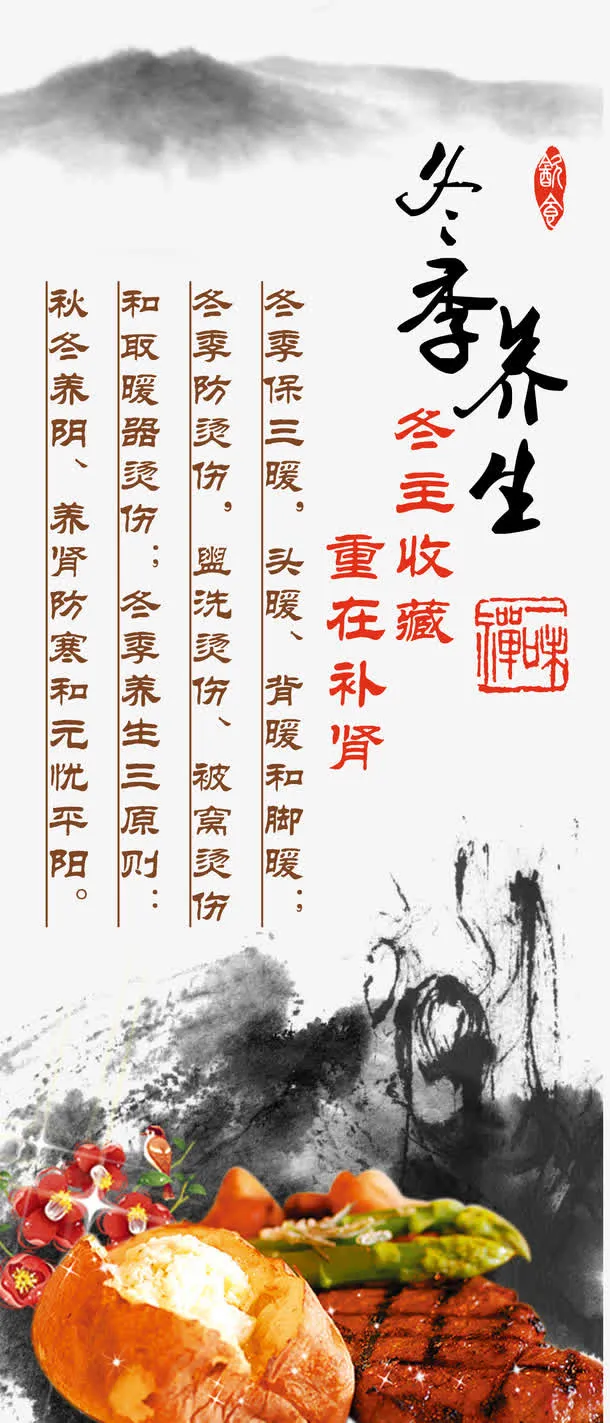 飲食
冬季养生
一味禪
冬主收藏
重在补肾
冬季保三暖，头暖、背暖和脚暖；
冬季防烫伤，盥洗烫伤、被窝烫伤
和取暖器烫伤；冬季养生三原则：
秋冬养阴、养肾防寒和元忧平阳。